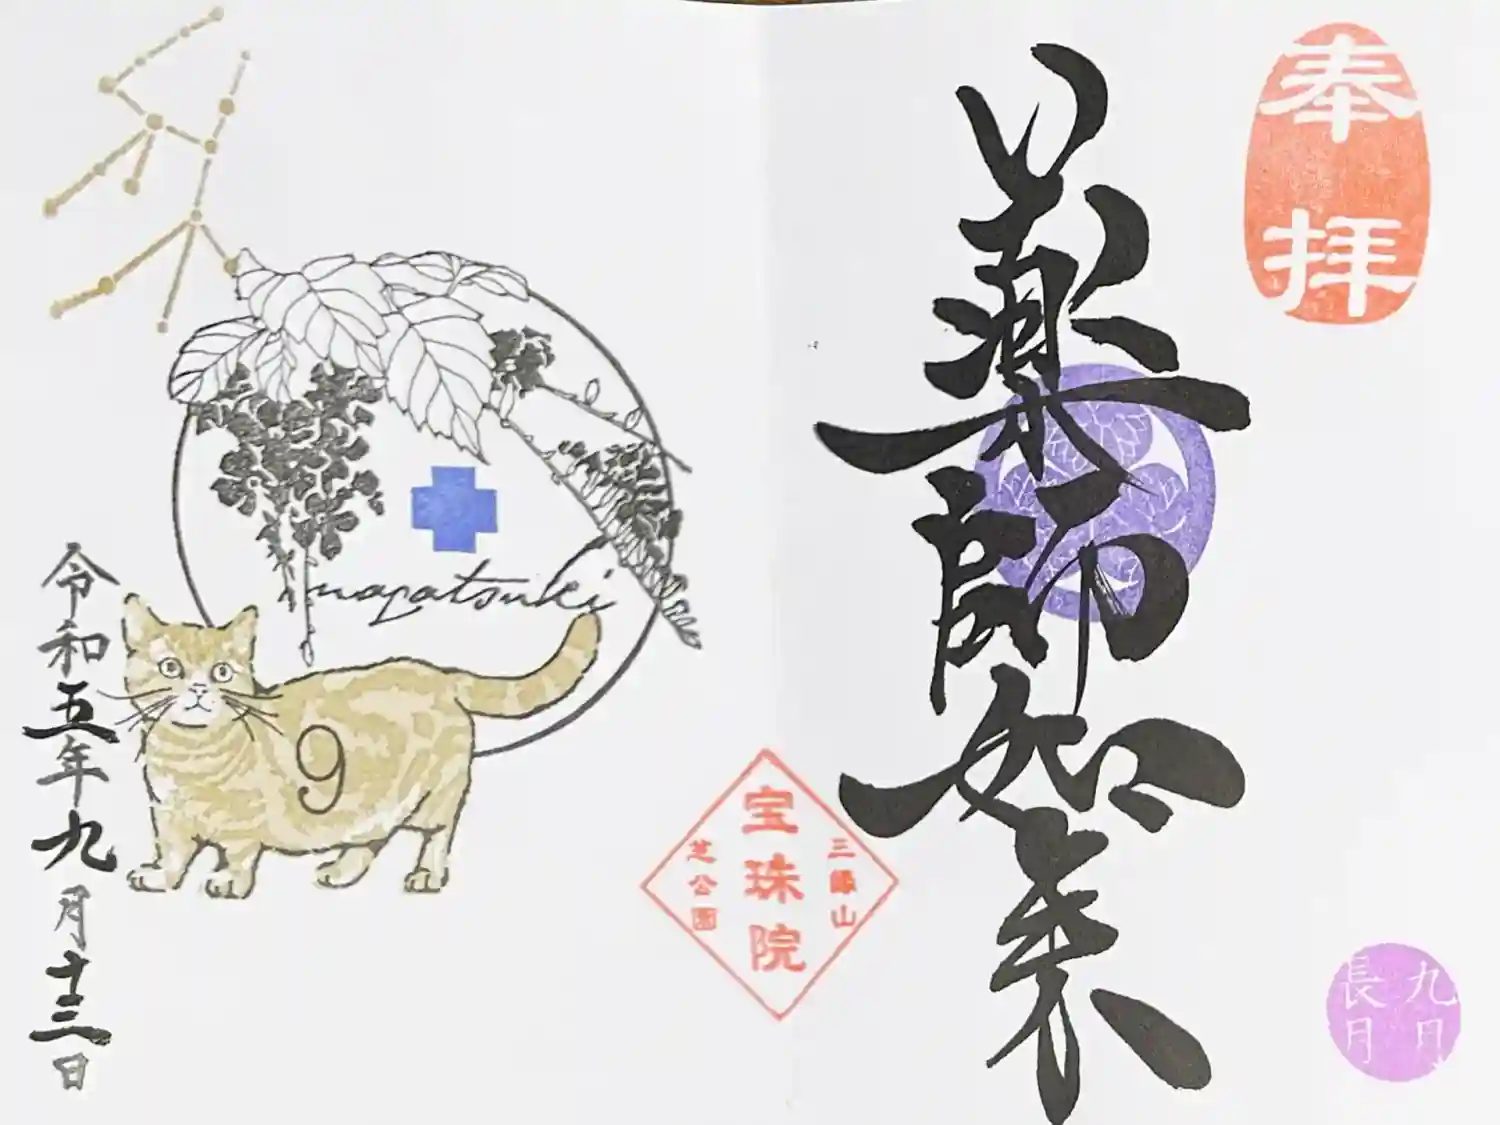 奉拝
薬師如来
九月
長月
三縁山
宝珠院
芝公園
nagatsuki
9
令和五年九月十三日